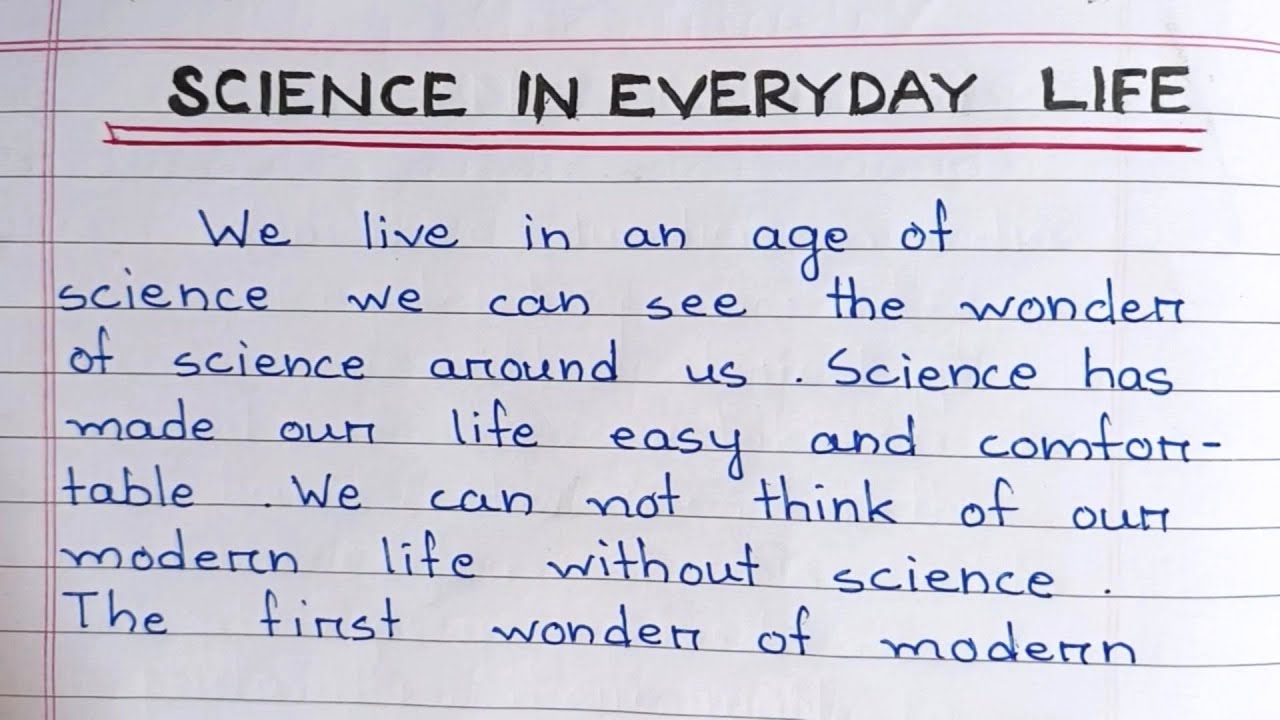 SCIENCE IN EVERYDAY LIFE
We live in an age of
science we can see the wonder
of science around us. Science has
made our life easy and comfor-
table. We can not think of our
modern life without science.
The first wonder of modern